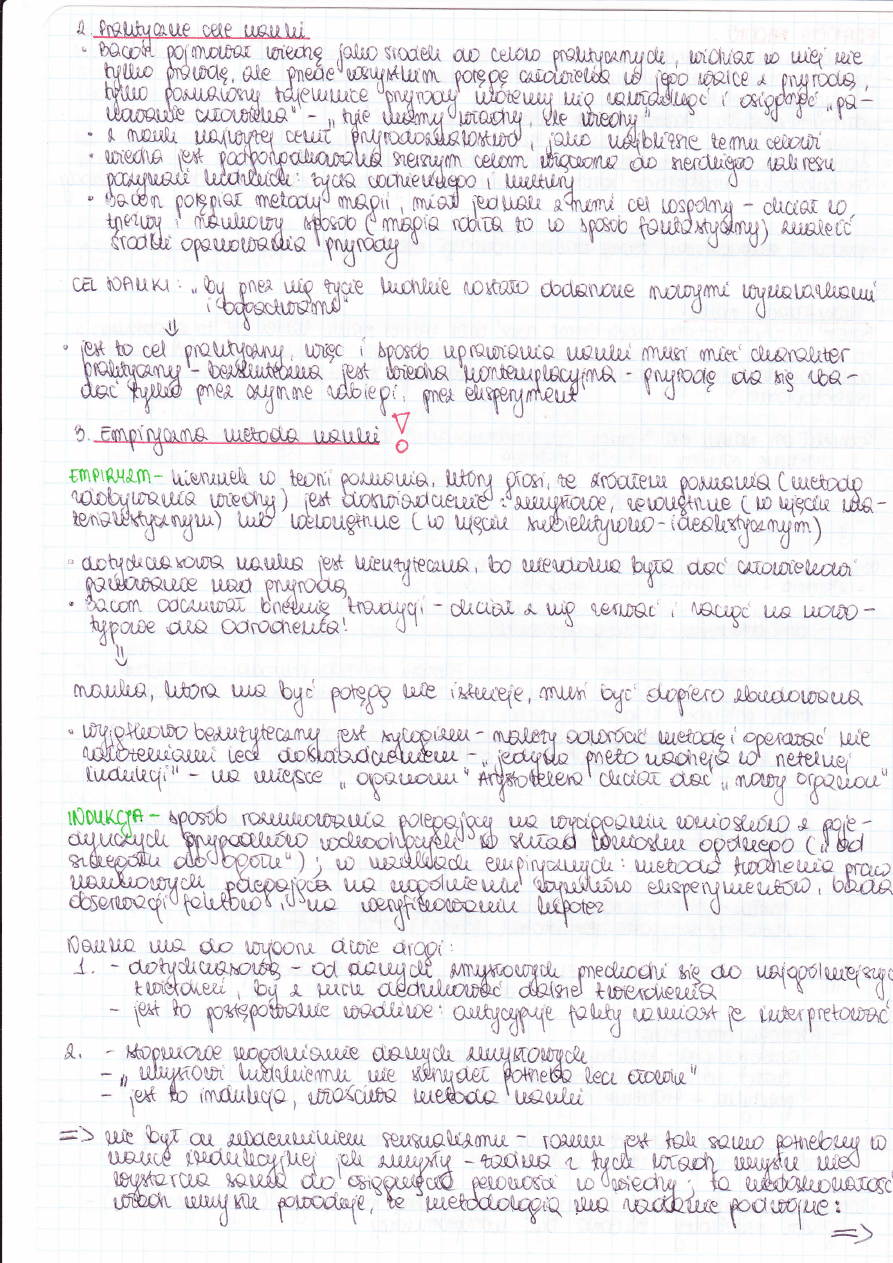 2. Praktyczne cele nauki
• Bacon pojmował wiedzę jako środek do celów praktycznych, widział w niej nie
tylko prawdę, ale przede wszystkim potęgę człowieka w jego walce z przyrodą,
tylko poznawszy tajemnice przyrody możemy nią zawładnąć i osiągnąć „pa-
nowanie człowieka" – „tyle mamy władzy, ile wiedzy"
• z nauk najwyżej cenił przyrodoznawstwo, jako najbliższe temu celowi
• wiedza jest podporządkowana szerszym celom włączona do szerokiego zakresu
poczynań ludzkich: życia codziennego i kultury
• Bacon potępiał metody magii, miał jednak z nimi cel wspólny – chciał w
trzeźwy i naukowy sposób (magia robiła to w sposób fantastyczny) znaleźć
środki opanowania przyrody
CEL NAUKI: „by przez nią życie ludzkie zostało obdarowane nowymi wynalazkami
i bogactwami"
⇓
• jest to cel praktyczny, więc i sposób uprawiania nauki musi mieć charakter
praktyczny – bezskuteczna jest wiedza kontemplacyjna – przyrodę da się zba-
dać tylko przez czynne zabiegi, przez eksperyment
3. Empiryczna metoda nauki !
EMPIRYZM – kierunek w teorii poznania, który głosi, że źródłem poznania (metodą
zdobywania wiedzy) jest doświadczenie: zmysłowe, zewnętrzne (w ujęciu ma-
terialistycznym) lub wewnętrzne (w ujęciu subiektywno-idealistycznym)
• dotychczasowa nauka jest nieużyteczna, bo niezdolna była dać człowiekowi
panowanie nad przyrodą
• Bacon odczuwał brzemię tradycji – chciał z nią zerwać i zacząć na nowo –
typowe dla Odrodzenia!
⇓
nauka, która ma być potęgą nie istnieje, musi być dopiero zbudowana
• wyjątkowo bezużyteczny jest sylogizm – należy odwrócić metodę i operować nie
założeniami lecz doświadczeniem – „jedyna przeto nadzieja w rzetelnej
indukcji" – na miejsce „organonu" Arystotelesa chciał dać „nowy organon"
INDUKCJA – sposób rozumowania polegający na wyciąganiu wniosków z poje-
dynczych przypadków wchodzących w skład wniosku ogólnego („od
szczegółu do ogółu"); w naukach empirycznych: metoda tworzenia praw
naukowych polegająca na uogólnieniu wyników eksperymentów, bada
obserwacji faktów, na weryfikowaniu hipotez
Nauka ma do wyboru dwie drogi:
1. – dotychczasową – od danych zmysłowych przechodzi się do najogólniejszyc
twierdzeń, by z nich dedukować dalsze twierdzenia
– jest to postępowanie wadliwe: antycypuje fakty zamiast je interpretować
2. – stopniowe uogólnianie danych zmysłowych
– „umysłowi ludzkiemu nie skrzydeł potrzeba lecz ołowiu"
– jest to indukcja, właściwa metoda nauki
=> nie był on zwolennikiem sensualizmu – rozum jest tak samo potrzebny w
nauce indukcyjnej jak zmysły – żadna z tych władz umysłu nie
wystarcza sama do osiągnięcia pewności w wiedzy; ta niedoskonałość
władz umysłu powoduje, że metodologia ma zadanie podwójne:
=>